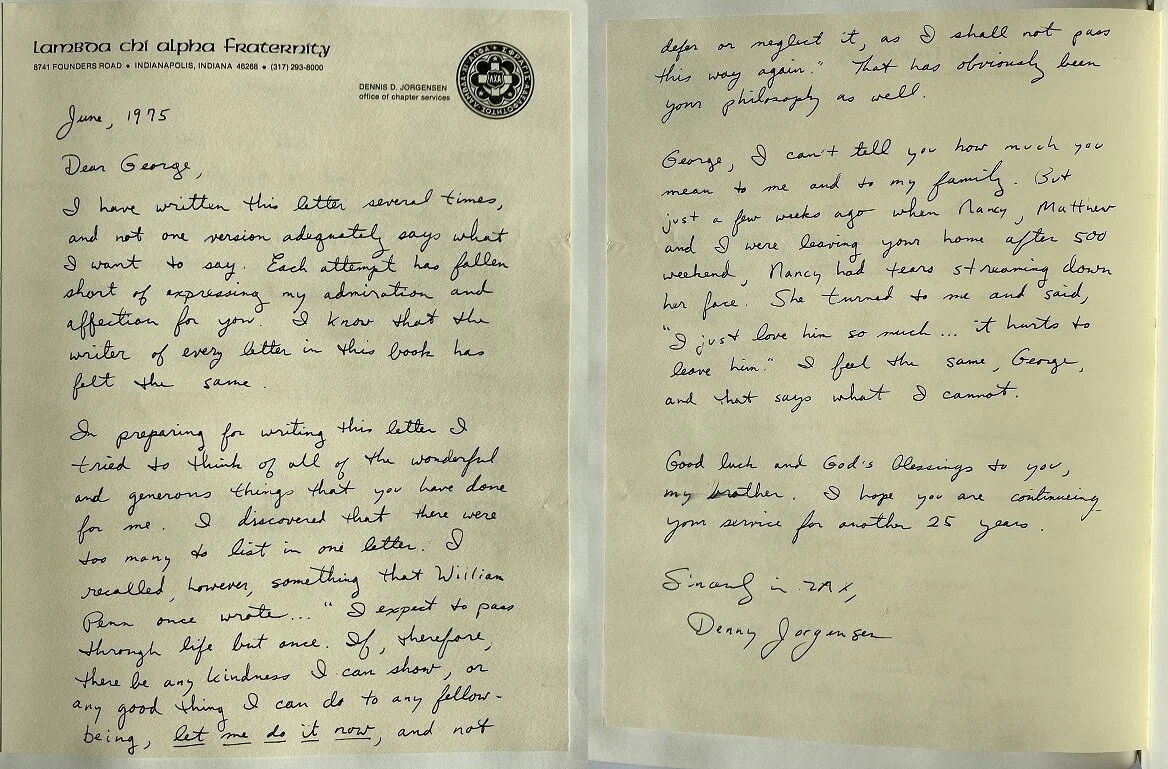 Lambda chi alpha Fraternity
8741 FOUNDERS ROAD • INDIANAPOLIS, INDIANA 46268 • (317) 293-8000
DENNIS D. JORGENSEN
office of chapter services
ΛΧΑ
June, 1975
Dear George,
I have written this letter several times,
and not one version adequately says what
I want to say. Each attempt has fallen
short of expressing my admiration and
affection for you. I know that the
writer of every letter in this book has
felt the same.
In preparing for writing this letter I
tried to think of all of the wonderful
and generous things that you have done
for me. I discovered that there were
too many to list in one letter. I
recalled, however, something that William
Penn once wrote... "I expect to pass
through life but once. If, therefore,
there be any kindness I can show, or
any good thing I can do to any fellow-
being, let me do it now, and not
defer or neglect it, as I shall not pass
this way again." That has obviously been
your philosophy as well.
George, I can't tell you how much you
mean to me and to my family. But
just a few weeks ago when Nancy, Matthew
and I were leaving your home after 500
weekend, Nancy had tears streaming down
her face. She turned to me and said,
"I just love him so much... it hurts to
leave him." I feel the same, George,
and that says what I cannot.
Good luck and God's blessings to you,
my brother. I hope you are continueing
your service for another 25 years.
Sincerely in ZAX,
Denny Jorgensen